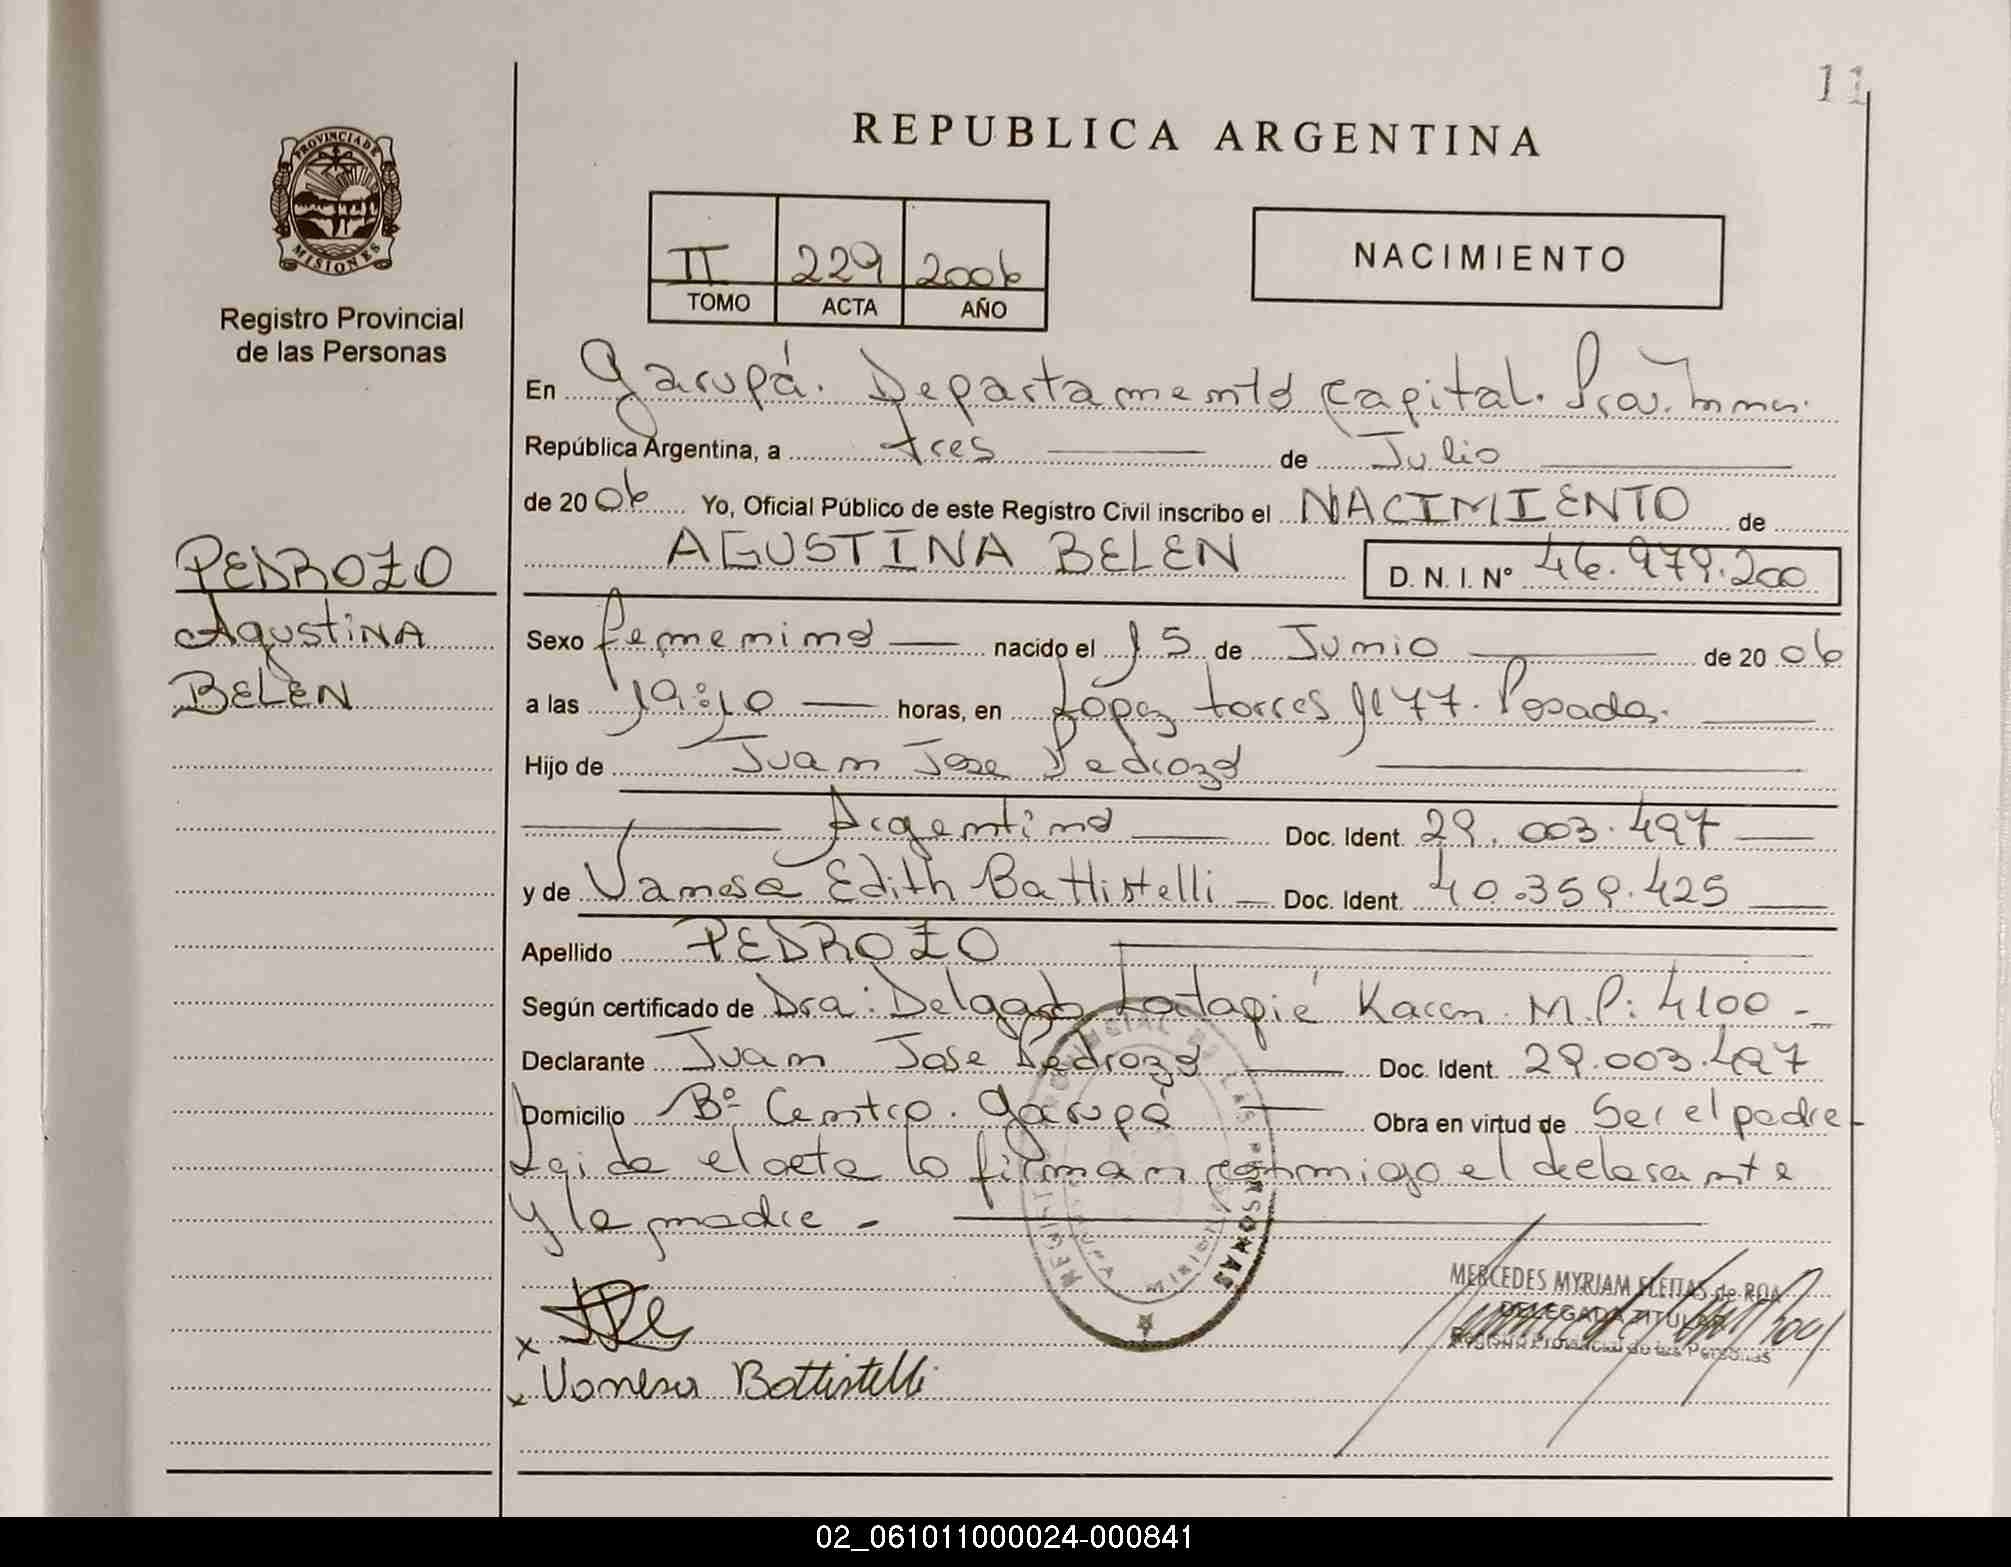 11
REPUBLICA ARGENTINA
PROVINCIA DE
MISIONES
Registro Provincial
de las Personas
II 229 2006
TOMO ACTA AÑO
NACIMIENTO
En Garupá. Departamento Capital. Prov.
República Argentina, a tres de Julio
de 20 06 Yo, Oficial Público de este Registro Civil inscribo el NACIMIENTO de
AGUSTINA BELEN D. N. I. Nº 46.979.200
PEDROZO
AgustiNA
BELEN
Sexo femenino nacido el 15 de Junio de 20 06
a las 19:10 horas, en López torres 1177. Posadas.
Hijo de Juan Jose Pedrozo
Argentino Doc. Ident. 29.003.497
y de Vanesa Edith Battistelli Doc. Ident. 40.359.425
Apellido PEDROZO
Según certificado de Dra: Delgado Latapié Karen M.P: 4100 -
Declarante Juan Jose Pedrozo Doc. Ident. 29.003.497
Domicilio Bº Centro. Garupá Obra en virtud de Ser el padre
Leida el acta lo firman conmigo el declarante
y la madre -
REGISTRO PROVINCIAL DE LAS PERSONAS
MERCEDES MYRIAM FLEITAS de ROA
DELEGADA TITULAR
Registro Provincial de las Personas
x
x Vanesa Battistelli
02_061011000024-000841